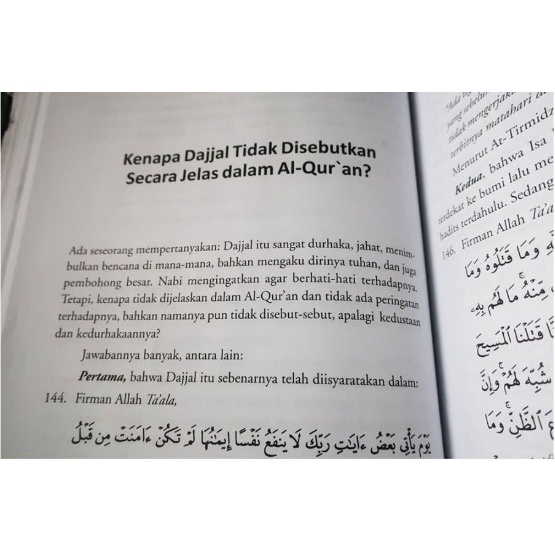 Kenapa Dajjal Tidak Disebutkan
Secara Jelas dalam Al-Qur`an?
Ada seseorang mempertanyakan: Dajjal itu sangat durhaka, jahat, menim-
bulkan bencana di mana-mana, bahkan mengaku dirinya tuhan, dan juga
pembohong besar. Nabi mengingatkan agar berhati-hati terhadapnya.
Tetapi, kenapa tidak dijelaskan dalam Al-Qur'an dan tidak ada peringatan
terhadapnya, bahkan namanya pun tidak disebut-sebut, apalagi kedustaan
dan kedurhakaannya?
Jawabannya banyak, antara lain:
Pertama, bahwa Dajjal itu sebenarnya telah diisyaratakan dalam:
144. Firman Allah Ta'ala,
يَوْمَ يَأْتِي بَعْضُ ءَايَٰتِ رَبِّكَ لَا يَنفَعُ نَفْسًا إِيمَٰنُهَا لَمْ تَكُنْ ءَامَنَتْ مِن قَبْلُ
yang sebelu
tidak mengerjak
terbitnya matahari d
Menurut At-Tirmidz
Kedua, bahwa Isa
terdekat ke bumi lalu me
hadits terdahulu. Sedang
146. Firman Allah Ta'a
وَمَا قَتَلُوهُ وَمَا
مِّنْهُ ۚ مَا لَهُم بِهِ
قَتَلْنَا ٱلْمَسِيحَ
شُبِّهَ لَهُمْ ۚ وَإِنَّ
ٱلظَّنِّ ۚ وَمَا